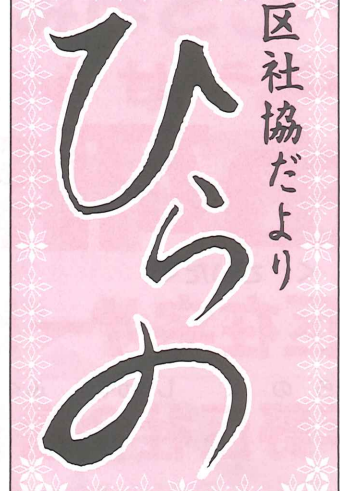 区社協だより
ひらの